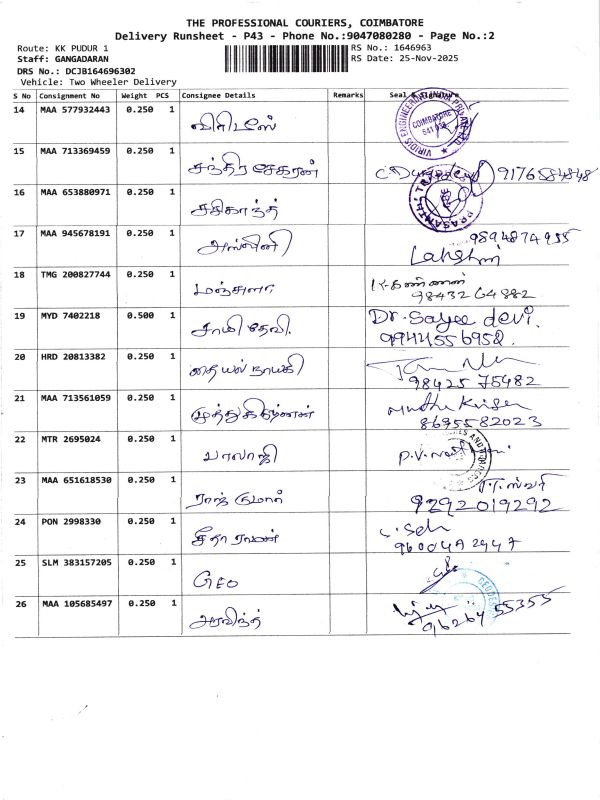 THE PROFESSIONAL COURIERS, COIMBATORE
Delivery Runsheet - P43 - Phone No.:9047080280 - Page No.:2
Route: KK PUDUR 1 RS No.: 1646963
Staff: GANGADARAN RS Date: 25-Nov-2025
DRS No.: DCJB164696302
Vehicle: Two Wheeler Delivery
S No Consignment No Weight PCS Consignee Details Remarks Seal & Signature
14 MAA 577932443 0.250 1
VIRIDIS ENGINEERING INDIA PRIVATE
COIMBATORE
15 MAA 713369459 0.250 1
சந்திர சேகரன் 9176584848
16 MAA 653880971 0.250 1 PRASANTHI
சசிகாந்த்
17 MAA 945678191 0.250 1 9894874955
அஸ்வினி Lakshmi
18 TMG 200827744 0.250 1 K-கண்ணன்
மஞ்சுளா 9843264882
19 MYD 7402218 0.500 1 Dr. Sayee devi.
சாயி தேவி. 9944556952
20 HRD 20813382 0.250 1
தையல் நாயகி 98425 75482
21 MAA 713561059 0.250 1 Muthu Krisen
முத்துகிருஷ்ணன் 8695582023
22 MTR 2695024 0.250 1
பாலாஜி
23 MAA 651618530 0.250 1
ராஜ் குமார் 9292019292
24 PON 2998330 0.250 1
சீதா ராமன் 9600492447
25 SLM 383157205 0.250 1
GEO
26 MAA 105685497 0.250 1
அரவிந்த் 96264 55355